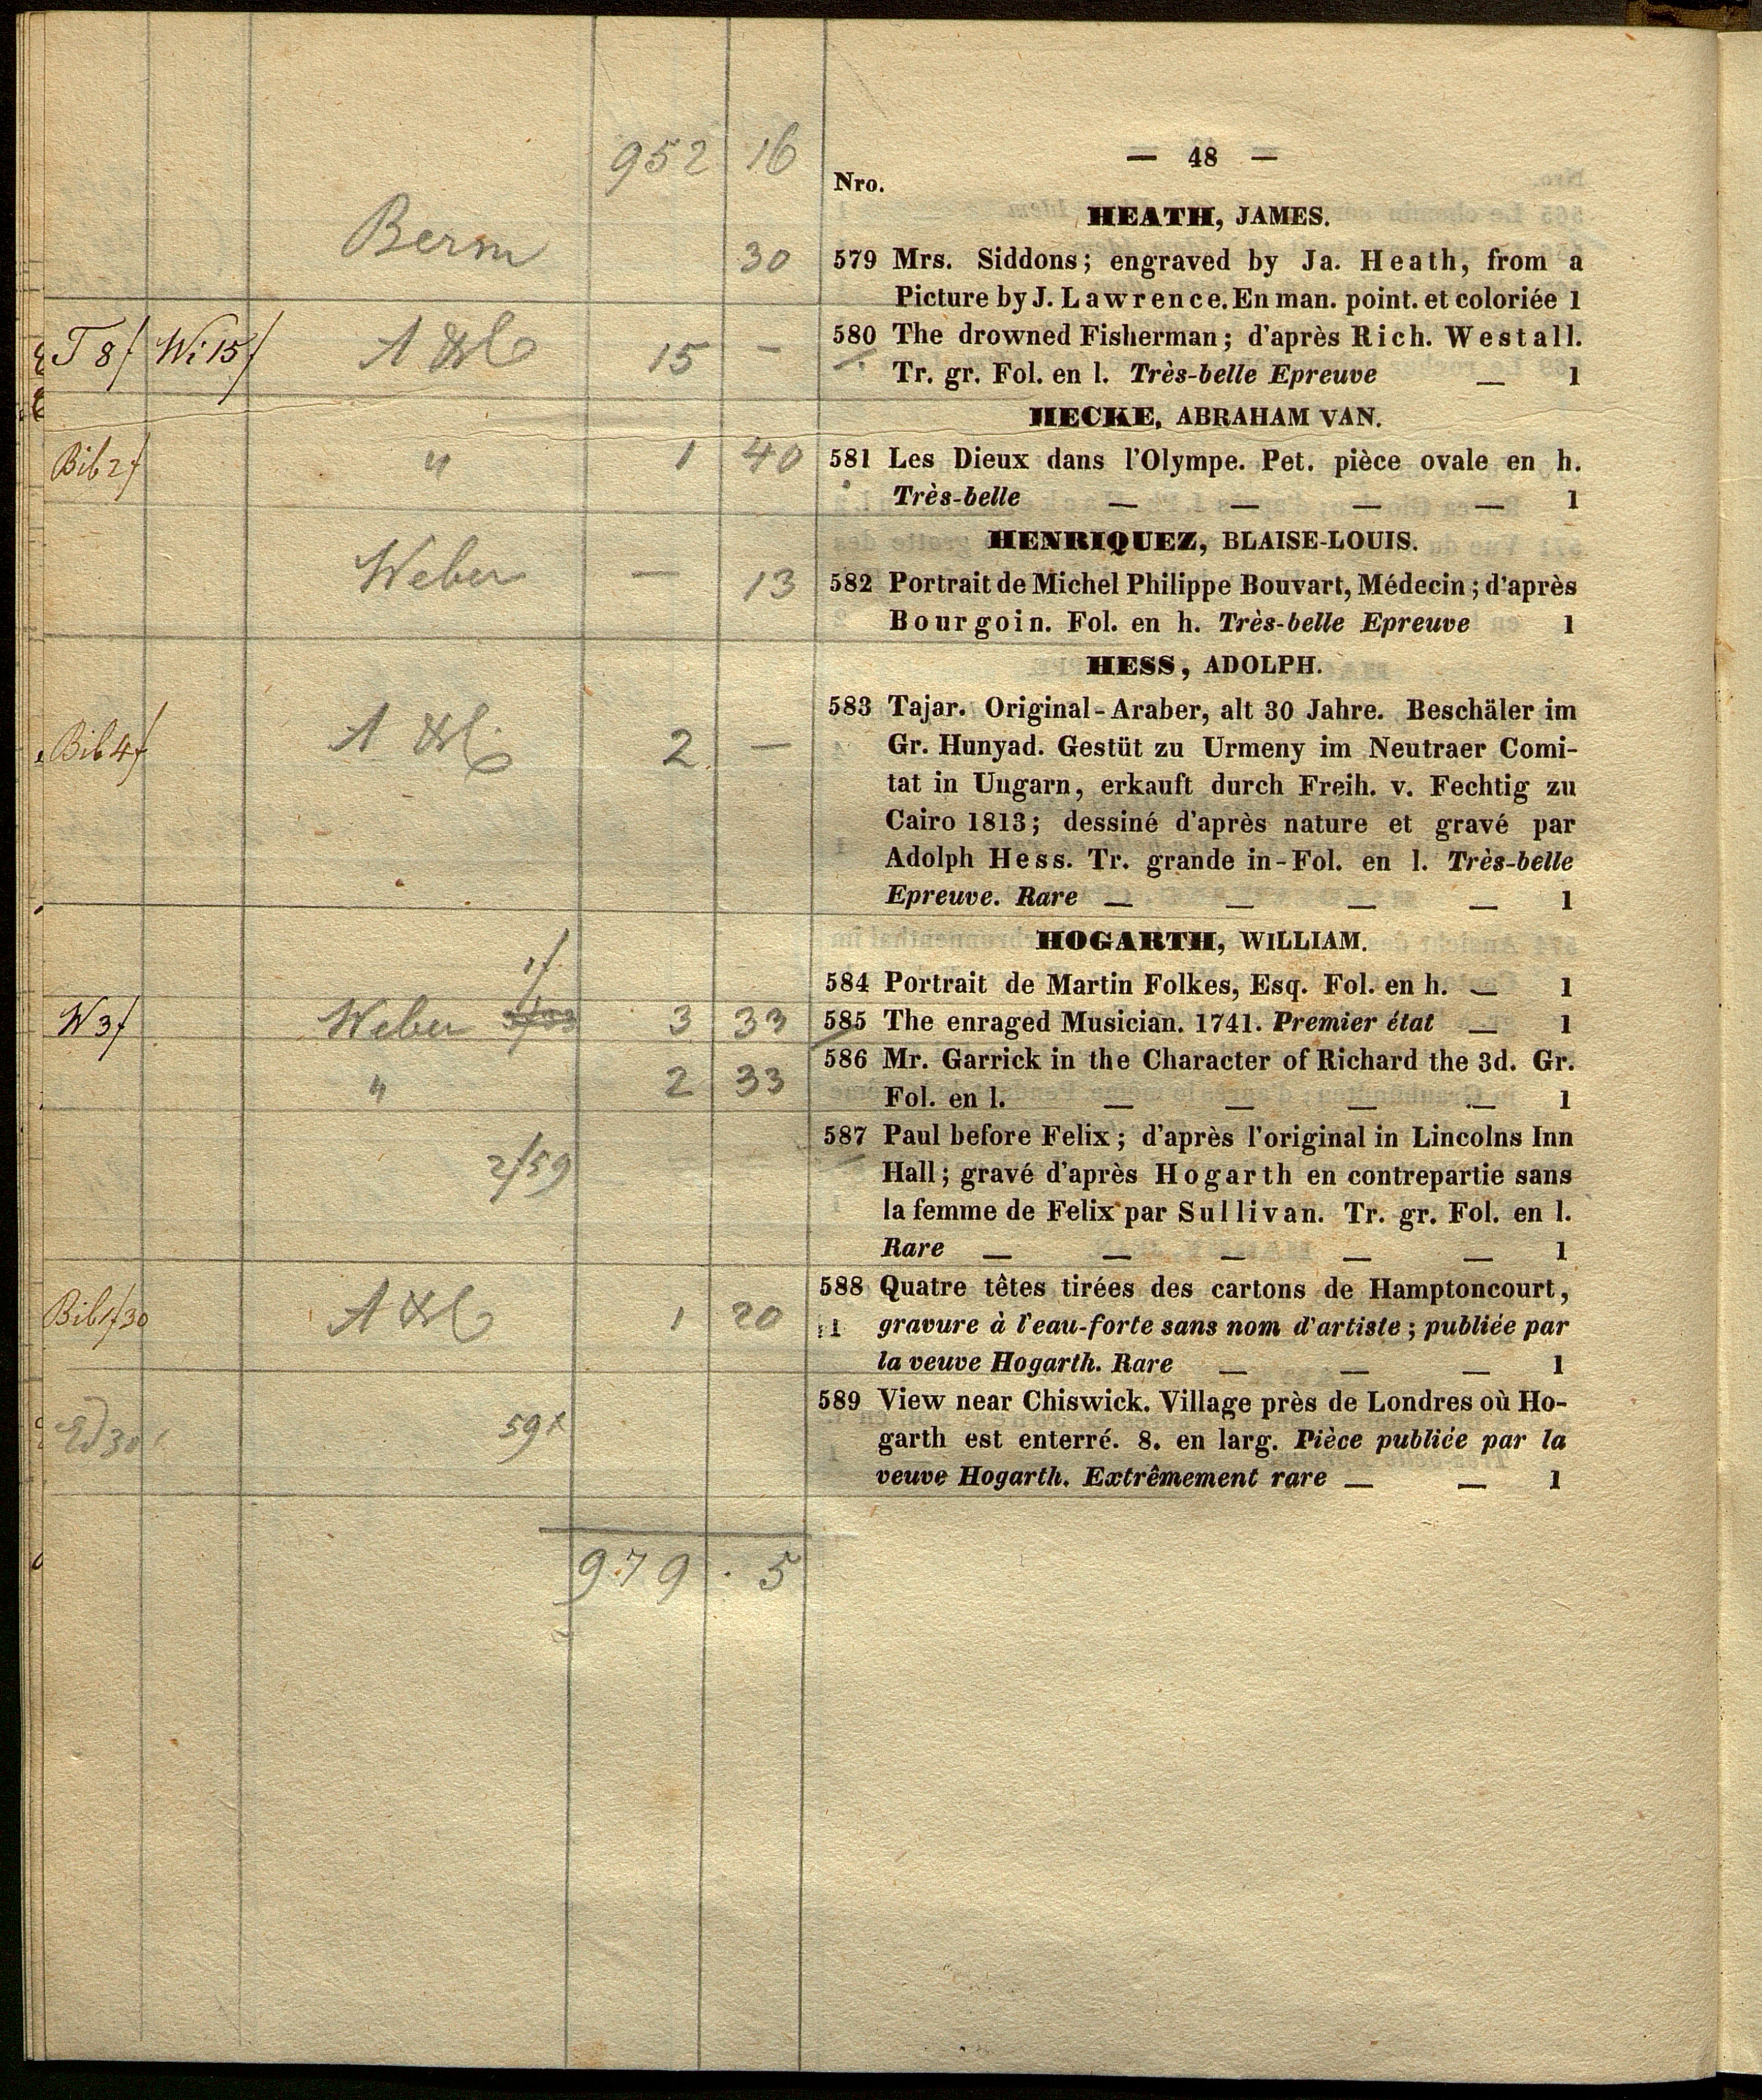 952 16
— 48 —
Nro.
HEATH, JAMES.
Berm 30 579 Mrs. Siddons; engraved by Ja. Heath, from a
Picture by J. Lawrence. En man. point. et coloriée 1
T 8f Wi 15f 15 — 580 The drowned Fisherman; d'après Rich. Westall.
Tr. gr. Fol. en l. Très-belle Epreuve — 1
HECKE, ABRAHAM VAN.
Bib 2f " 1 40 581 Les Dieux dans l'Olympe. Pet. pièce ovale en h.
Très-belle — — — — 1
HENRIQUEZ, BLAISE-LOUIS.
Weber — 13 582 Portrait de Michel Philippe Bouvart, Médecin; d'après
Bourgoin. Fol. en h. Très-belle Epreuve 1
HESS, ADOLPH.
583 Tajar. Original-Araber, alt 30 Jahre. Beschäler im
Bib 4f 2 — Gr. Hunyad. Gestüt zu Urmeny im Neutraer Comi-
tat in Ungarn, erkauft durch Freih. v. Fechtig zu
Cairo 1813; dessiné d'après nature et gravé par
Adolph Hess. Tr. grande in-Fol. en l. Très-belle
Epreuve. Rare — — — — 1
HOGARTH, WILLIAM.
1f 584 Portrait de Martin Folkes, Esq. Fol. en h. — 1
W 3f Weber 3 33 585 The enraged Musician. 1741. Premier état — 1
" 2 33 586 Mr. Garrick in the Character of Richard the 3d. Gr.
Fol. en l. — — — — 1
587 Paul before Felix; d'après l'original in Lincolns Inn
2f59 Hall; gravé d'après Hogarth en contrepartie sans
la femme de Felix par Sullivan. Tr. gr. Fol. en l.
Rare — — — — — 1
588 Quatre têtes tirées des cartons de Hamptoncourt,
Bib 1f30 1 20 gravure à l'eau-forte sans nom d'artiste; publiée par
la veuve Hogarth. Rare — — — 1
589 View near Chiswick. Village près de Londres où Ho-
59x garth est enterré. 8. en larg. Pièce publiée par la
veuve Hogarth. Extrêmement rare — — 1
979 . 5